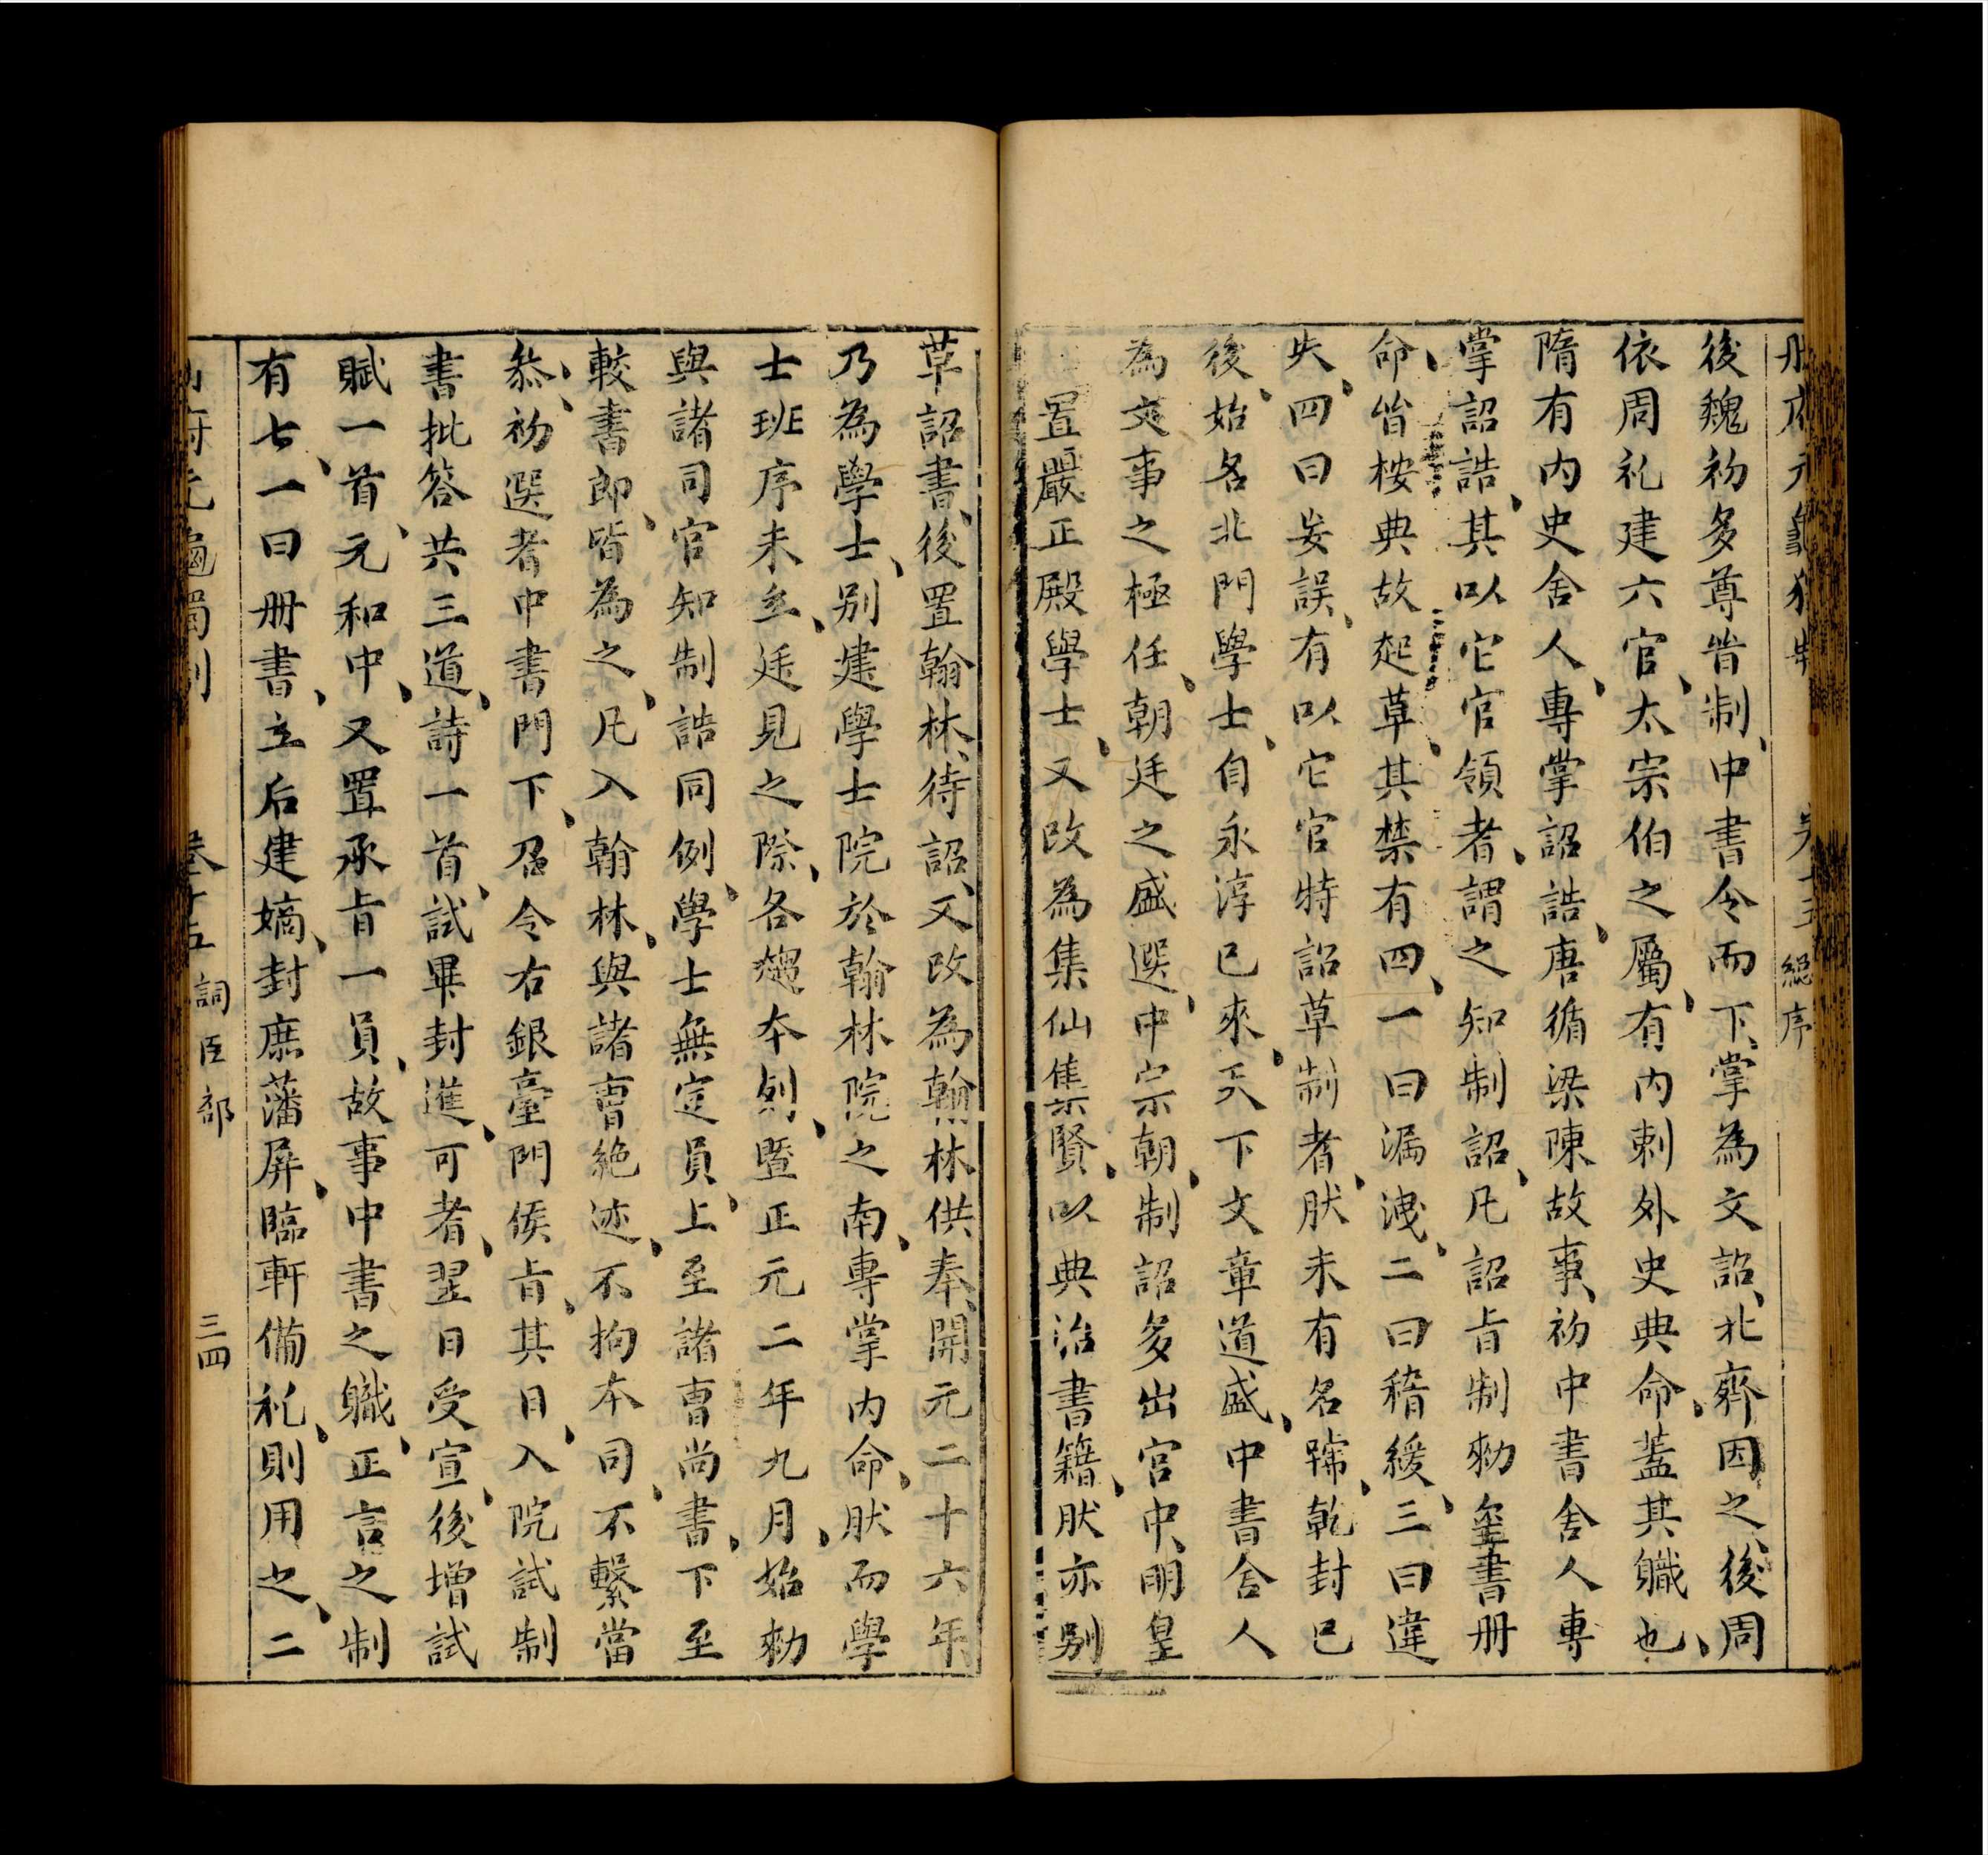 冊府元龜獨制 卷十五 總序
後魏初多尊肯制、中書令而下、掌為文詔、北齊因之、後周
依周礼建六官、太宗伯之屬、有内刺外史典命、蓋其職也、
隋有内史舍人、專掌詔誥、唐循梁陳故事、初中書舍人專
掌詔誥、其以它官領者、謂之知制詔、凡詔㫖制勑璽書册
命、皆桉典故起草、其禁有四、一曰漏洩、二曰稽緩、三曰違
失、四曰妄誤、有以它官特詔草制者、肰未有名號、乾封已
後、始名北門學士、自永淳已來、天下文章道盛、中書舍人
為文事之極任、朝廷之盛選、中宗朝、制詔多出宫中、明皇
置嚴正殿學士、又改為集仙集賢、以典治書籍、肰亦别
草詔書、後置翰林、待詔、又改為翰林供奉、開元二十六年
乃為學士、别建學士院於翰林院之南、專掌内命、肰而學
士班序未立、廷見之際、各趨本列、暨正元二年九月、始勑
與諸司官知制誥同例、學士無定員、上至諸曹尚書、下至
較書郎、皆為之、凡入翰林、與諸曹絶迹、不拘本司、不繫當
叅、初選者中書門下、召令右銀臺門俟㫖、其日、入院試制
書批答共三道、詩一首、試畢封進、可者、翌日受宣、後增試
賦一首、元和中、又置承㫖一員、故事中書之職、正言之制
有七、一曰册書、立后建嫡、封庶藩屏、臨軒備礼、則用之、二
府元龜獨制 卷十五 詞臣部 三四